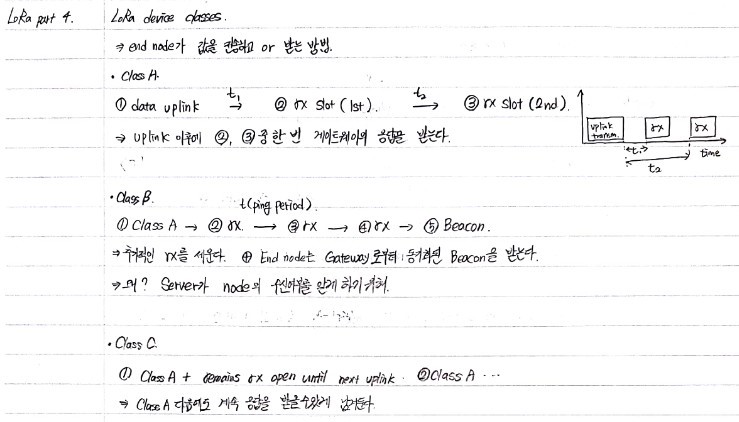 LoRa part 4. LoRa device classes.
⇒ end node가 값을 전송하고 or 받는 방법.
• Class A.
① data uplink →(t1) ② rx slot (1st). →(t2) ③ rx slot (2nd).
uplink transm. rx rx
t1 time
t2
⇒ uplink 이후에 ②, ③ 중 한 번 게이트웨이의 응답을 받는다.
• Class B. t(ping period).
① Class A → ② rx. → ③ rx → ④ rx → ⑤ Beacon.
⇒ 추가적인 rx를 세운다. ⊕ End node는 Gateway로부터 동기화된 Beacon을 받는다.
⇒ 왜? Server가 node의 수신여부를 알게 하기 위해.
• Class C.
① Class A + remains rx open until next uplink. ② Class A ...
⇒ Class A 다음에도 계속 응답을 받을 수 있게 남겨둔다.